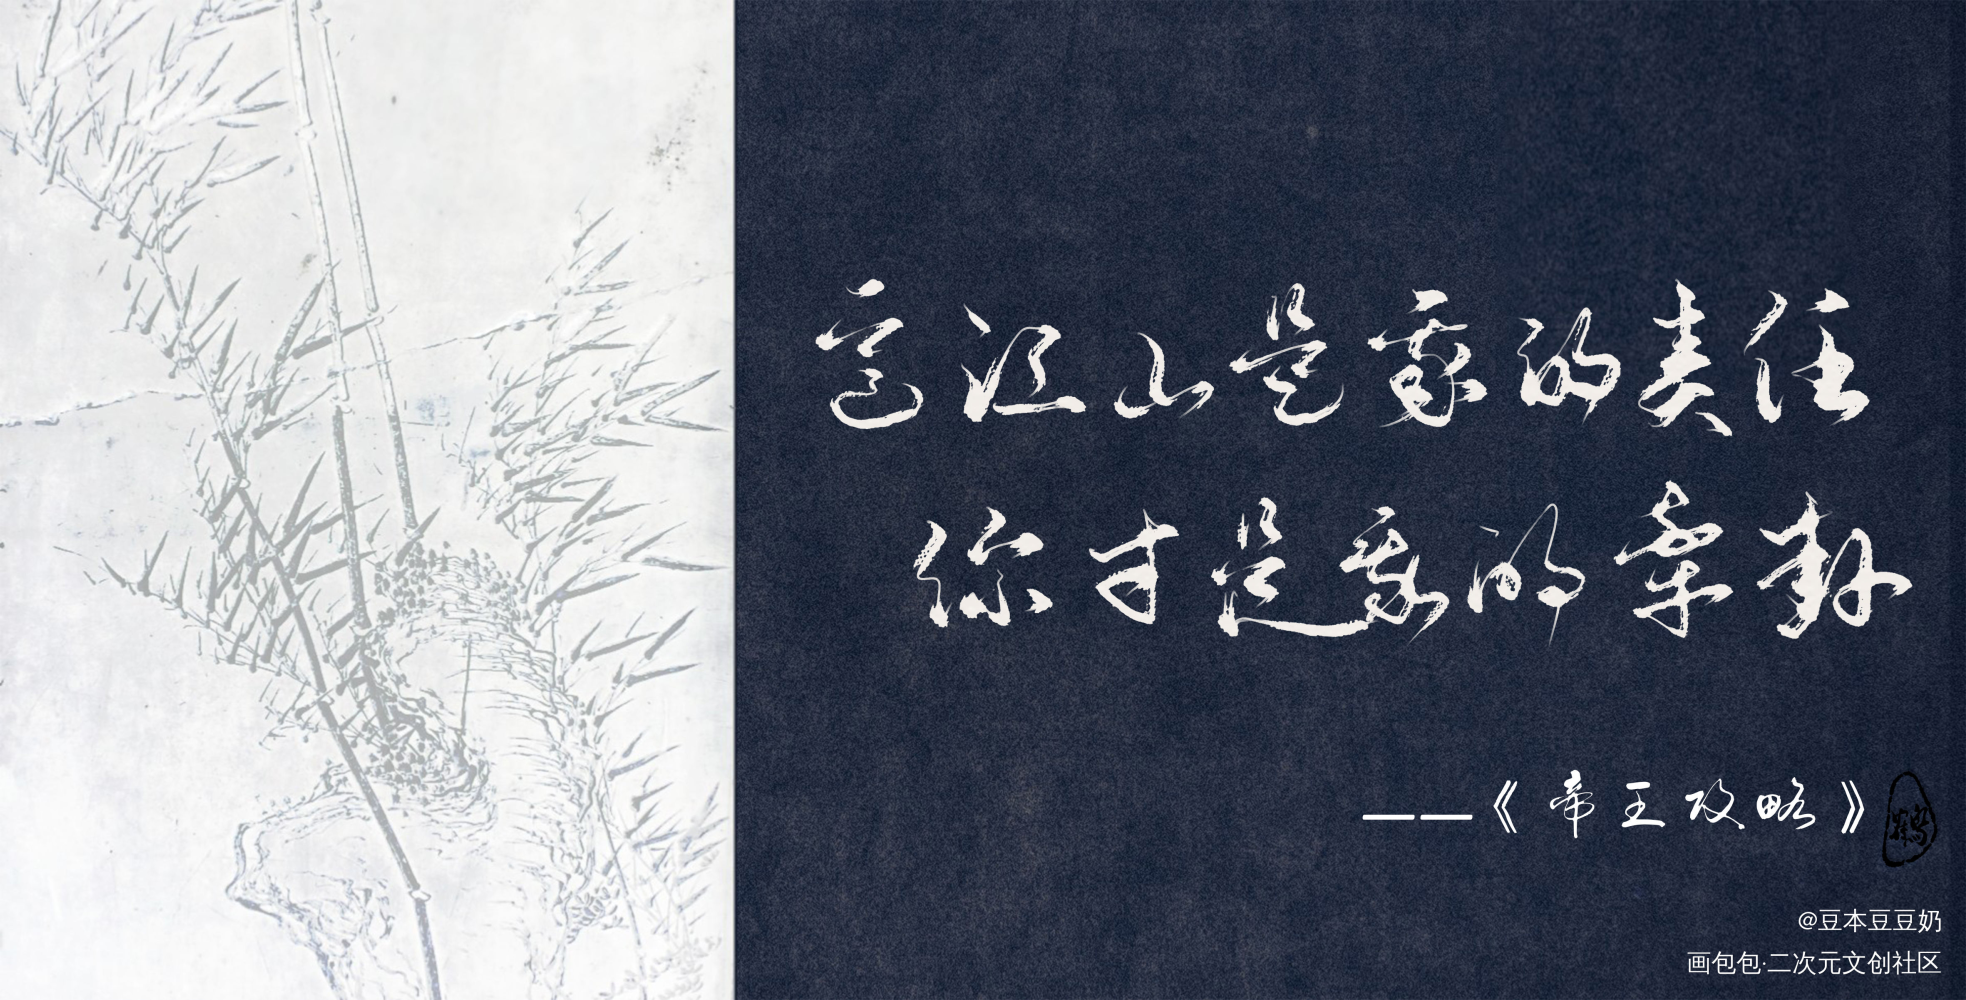 这江山是我的责任
你才是我的牵挂
——《帝王攻略》
鹤
@豆本豆豆奶
画包包·二次元文创社区